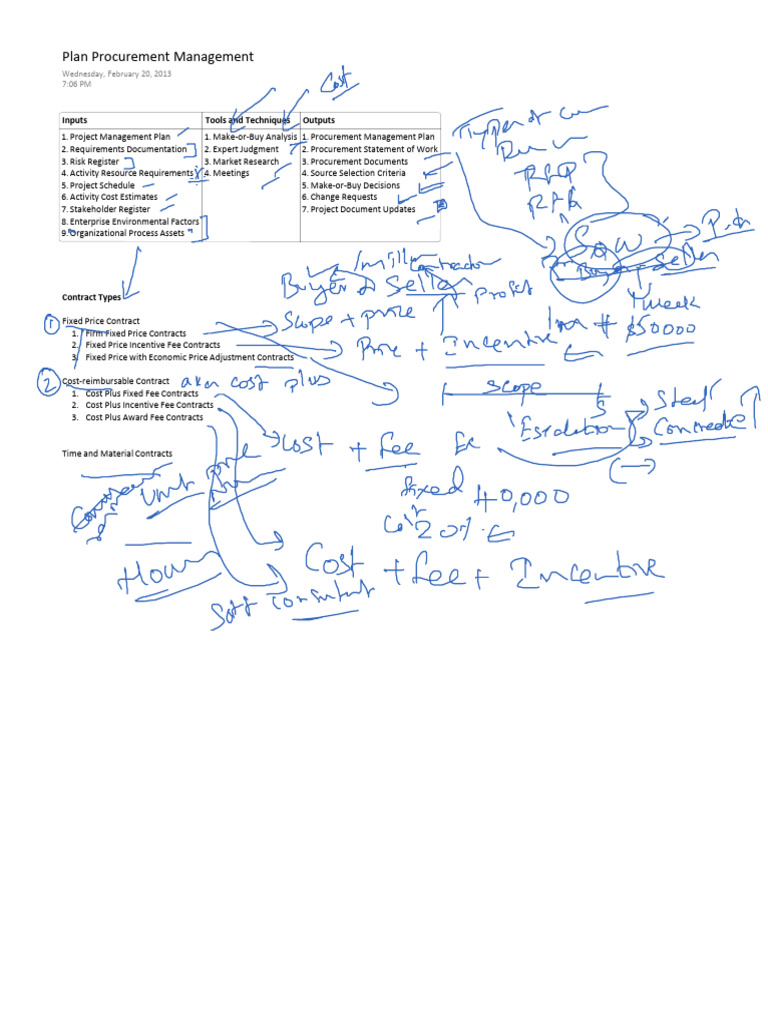 Plan Procurement Management
Wednesday, February 20, 2013
7:06 PM
Cost
Inputs
1. Project Management Plan
2. Requirements Documentation
3. Risk Register
4. Activity Resource Requirements
5. Project Schedule
6. Activity Cost Estimates
7. Stakeholder Register
8. Enterprise Environmental Factors
9. Organizational Process Assets
Tools and Techniques
1. Make-or-Buy Analysis
2. Expert Judgment
3. Market Research
4. Meetings
Outputs
1. Procurement Management Plan
2. Procurement Statement of Work
3. Procurement Documents
4. Source Selection Criteria
5. Make-or-Buy Decisions
6. Change Requests
7. Project Document Updates
Types of
SOW
Buyer
Seller
Contractor
Buyer & Seller
Profit
Scope + price
Price + Incentive
1 week
$50000
Scope
5
Steel
Escalation
Concrete
Contract Types
1
Fixed Price Contract
1. Firm Fixed Price Contracts
2. Fixed Price Incentive Fee Contracts
3. Fixed Price with Economic Price Adjustment Contracts
2
Cost-reimbursable Contract
aka cost plus
1. Cost Plus Fixed Fee Contracts
2. Cost Plus Incentive Fee Contracts
3. Cost Plus Award Fee Contracts
Cost + fee
fixed 40,000
20%
Time and Material Contracts
Unit Price
Hour
Cost + fee + Incentive